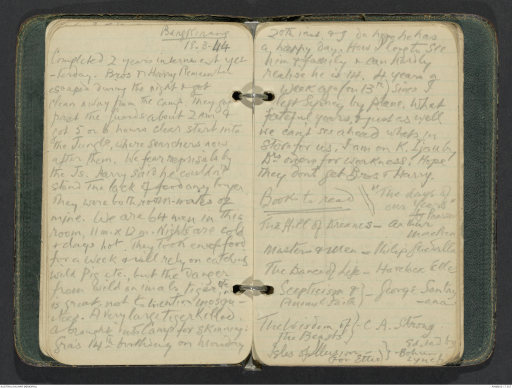 Bangkinang
15.3.44
Completed 2 years internment yes
-terday. Bros & Harry
escaped during the night & got
clean away from the camp. They got
past the guards about 2 a.m. &
got 5 or 6 hours clear start into
the Jungle, where searchers now
after them. We fear reprisals by
the Js. Harry said he couldn't
stand the lack of food any longer
They were both room-mates of
mine. We are 64 men in this
room, Nights are cold
& days hot. They took enough food
for a week & will rely on catching
wild pig etc. but the danger
from wild animals tigers etc
is great, not to mention mosqu-
itoes. A very large tiger killed
& brought into camp for skinning.
Gra's 14th birthday on Monday
20th inst & I do hope he has
a happy day. How I long to see
him & family & can hardly
realise he is 14. 4 years
week ago (on 13th) since I
left Sydney by plane. What
fateful years, & just as well
we can't see ahead what's in
store for us. I am on K. by
Drs orders for weakness. Hope
they don't get Bros & Harry.
Books to read
"The days of
our years"
The Hill of Dreams — Arthur
Machen
Masters & Men — Philip
The Dance of Life — Havelock Ellis
Scepticism & Animal Faith } — George Santay
-ana
The Wisdom of
the Beasts } — C. A. Strong
Isles of Illusion
(For Ellis) } — Edited by
Bohun
Lynch